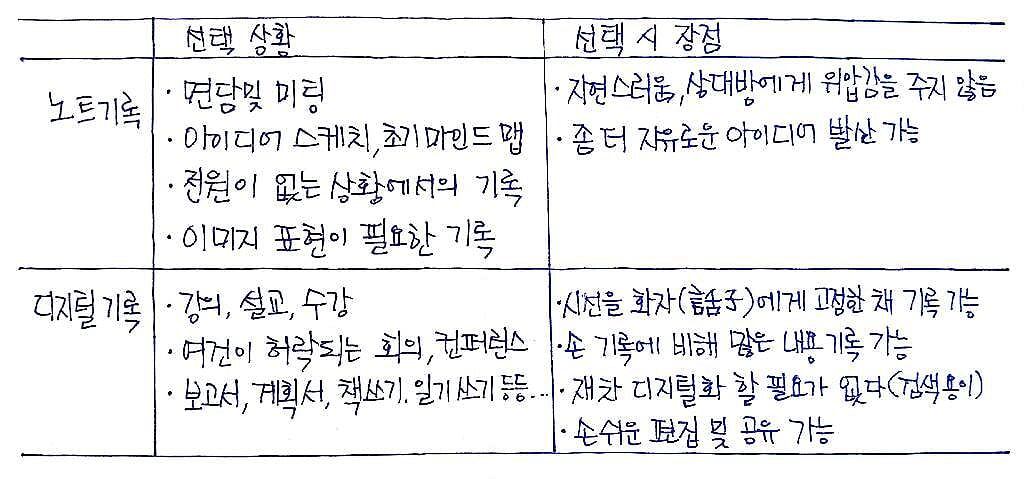 선택 상황 선택 시 장점
노트기록
· 면담및 미팅
· 아이디어 스케치, 초기마인드 맵
· 전원이 없는 상황에서의 기록
· 이미지 표현이 필요한 기록
· 자연스러움, 상대방에게 위압감을 주지 않음
· 좀 더 자유로운 아이디어 발산 가능
디지털기록
· 강의, 설교, 수강
· 여건이 허락되는 회의, 컨퍼런스
· 보고서, 계획서, 책쓰기. 일기쓰기 등등...
· 시선을 화자(話子)에게 고정한 채 기록 가능
· 손 기록에 비해 많은 내용기록 가능
· 재차 디지털화 할 필요가 없다(검색용이)
· 손쉬운 편집 및 공유 가능